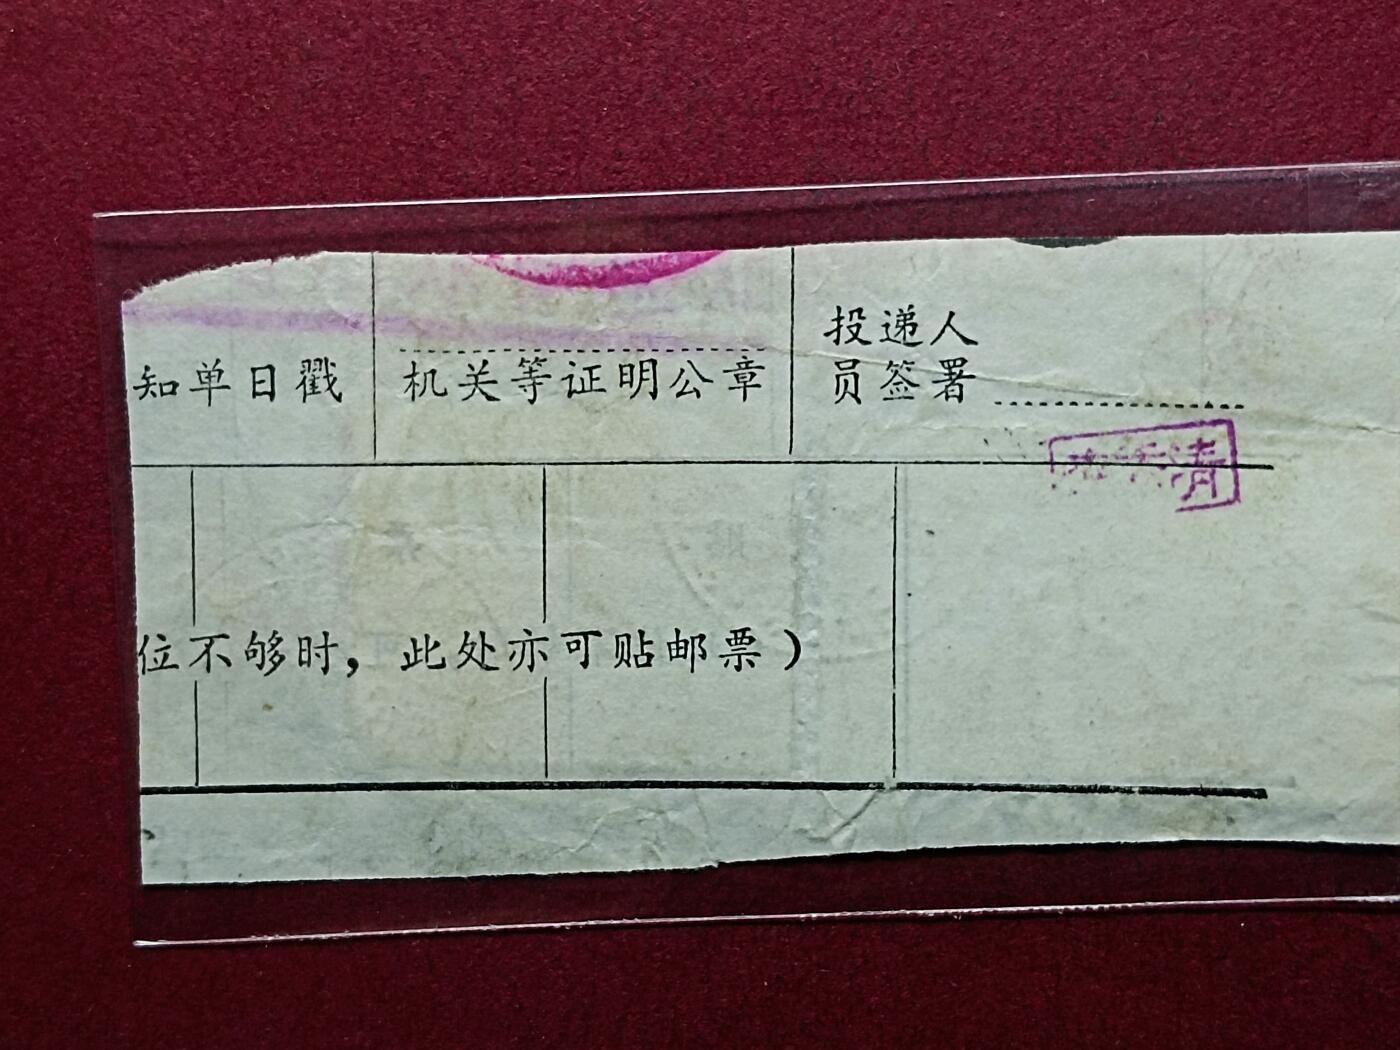 投递人
知单日戳 机关等证明公章 员签署
清
位不够时，此处亦可贴邮票）